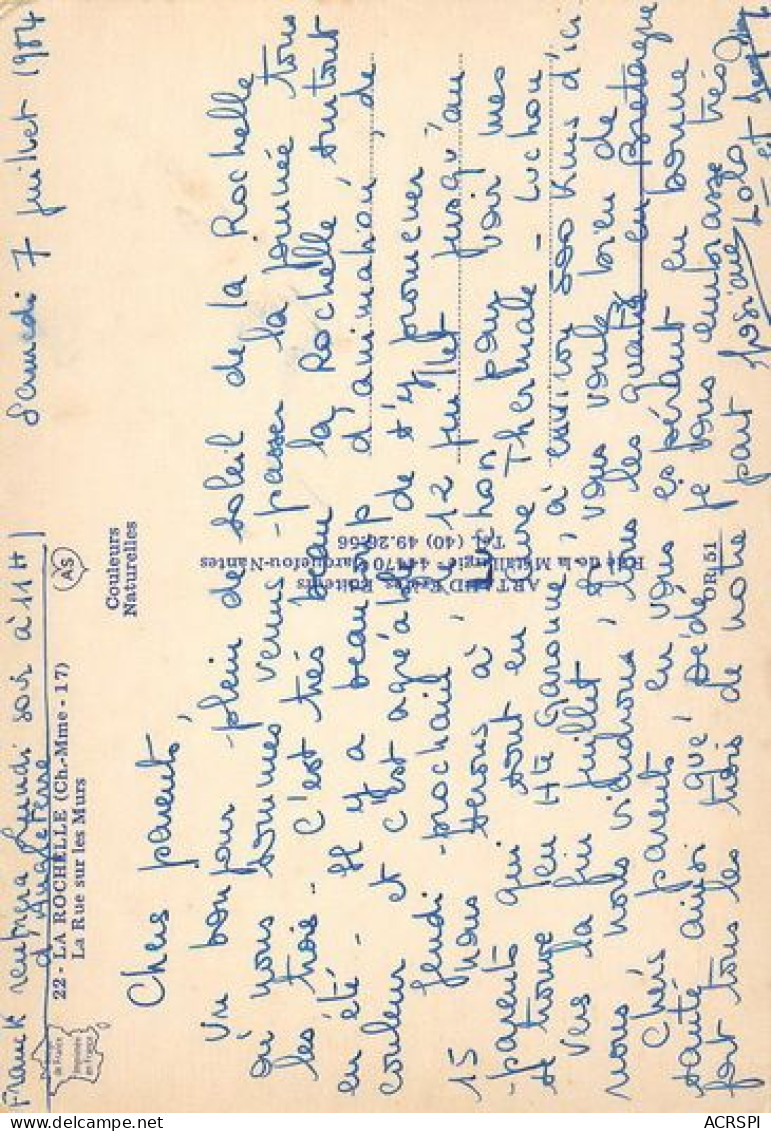 Franck rentrera Lundi soir à 11H
d'Angleterre
Samedi 7 juillet 1984
22 - LA ROCHELLE (Ch.-Mme - 17)
La Rue sur les Murs
AS
Couleurs
Naturelles
Chers parents,
Un bonjour plein de soleil de la Rochelle
où nous sommes venus passer la journée tous
les trois - C'est très beau la Rochelle surtout
en été - Il y a beaucoup d'animation, de
couleur et c'est agréable de s'y promener
Jeudi prochain 12 juillet jusqu'au
15 nous serons à Luchon pour voir mes
parents qui sont en cure Thermale - Luchon
se trouve en Hte Garonne, à environ 500 Kms d'ici
Vers la fin juillet, si vous voulez bien de
nous, nous viendrons tous les quatre en Bretagne
Chers parents en vous espérant en bonne
santé ainsi que Dédé je vous embrasse très
fort tous les trois de notre part
Josiane Lolo
et
ARTAUD Frères Editeurs
Rue de la Métallurgie - 44470 Carquefou-Nantes
Tél. (40) 49.26.56
OR 51
de France
Imprimée
en France
ACRSPI